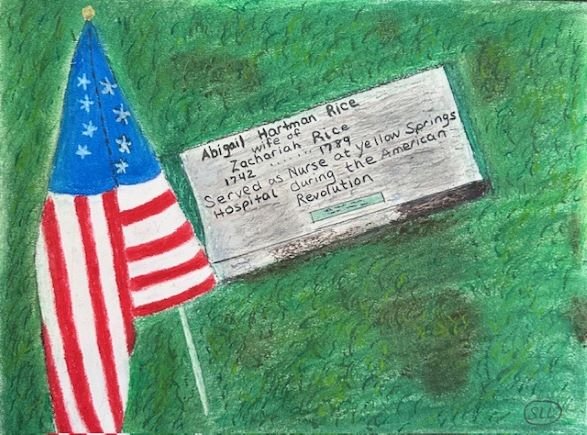 Abigail Hartman Rice
wife of
Zachariah Rice
1742 ........ 1789
Served as Nurse at Yellow Springs
Hospital during the American
Revolution
SLL